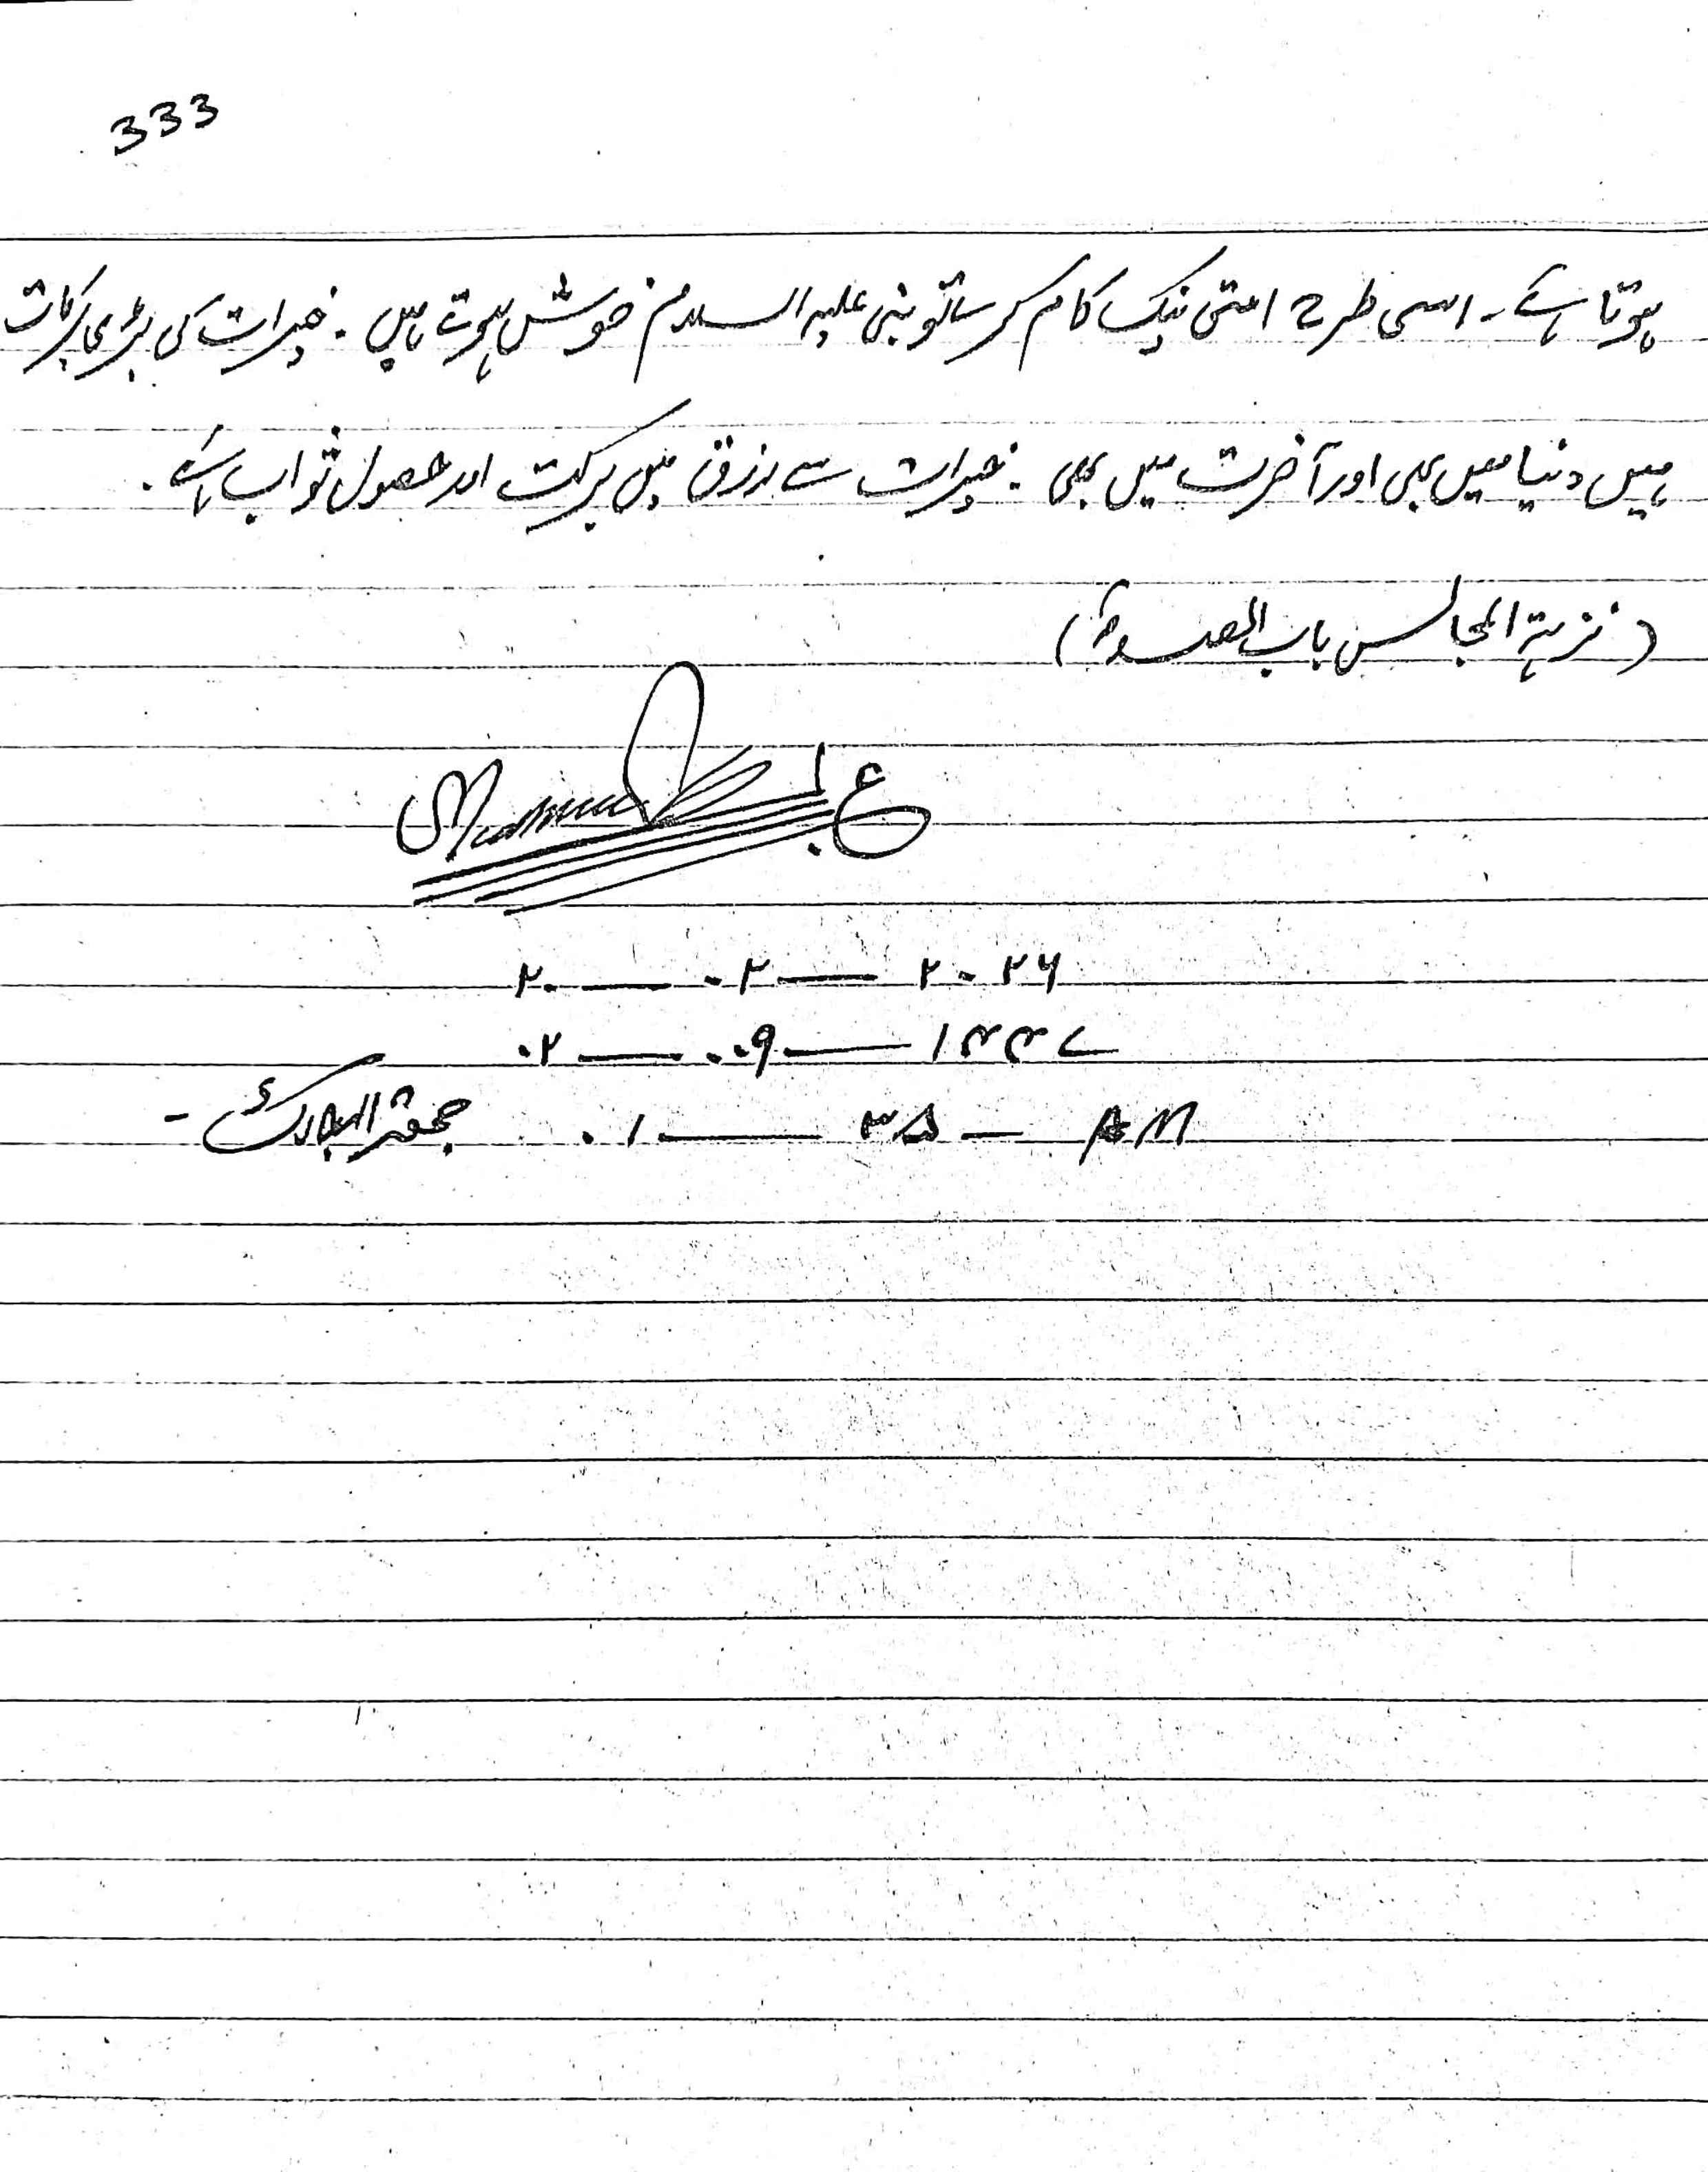 333
ہوتا ہے۔ اسی طرح امتی نیک کام کرے تو نبی علیہ السلام خوش ہوتے ہیں۔ خیرات کی بڑی برکات
ہیں دنیا میں بھی اور آخرت میں بھی۔ خیرات سے رزق میں برکت اور حصول ثواب ہے۔
(نزہۃ المجالس باب الصدقۃ)
۲۰ — ۰۲ — ۲۰۲۶
۰۲ — ۰۹ — ۱۴۴۷
۰۱ — ۳۵ — AM جمعۃ المبارک۔